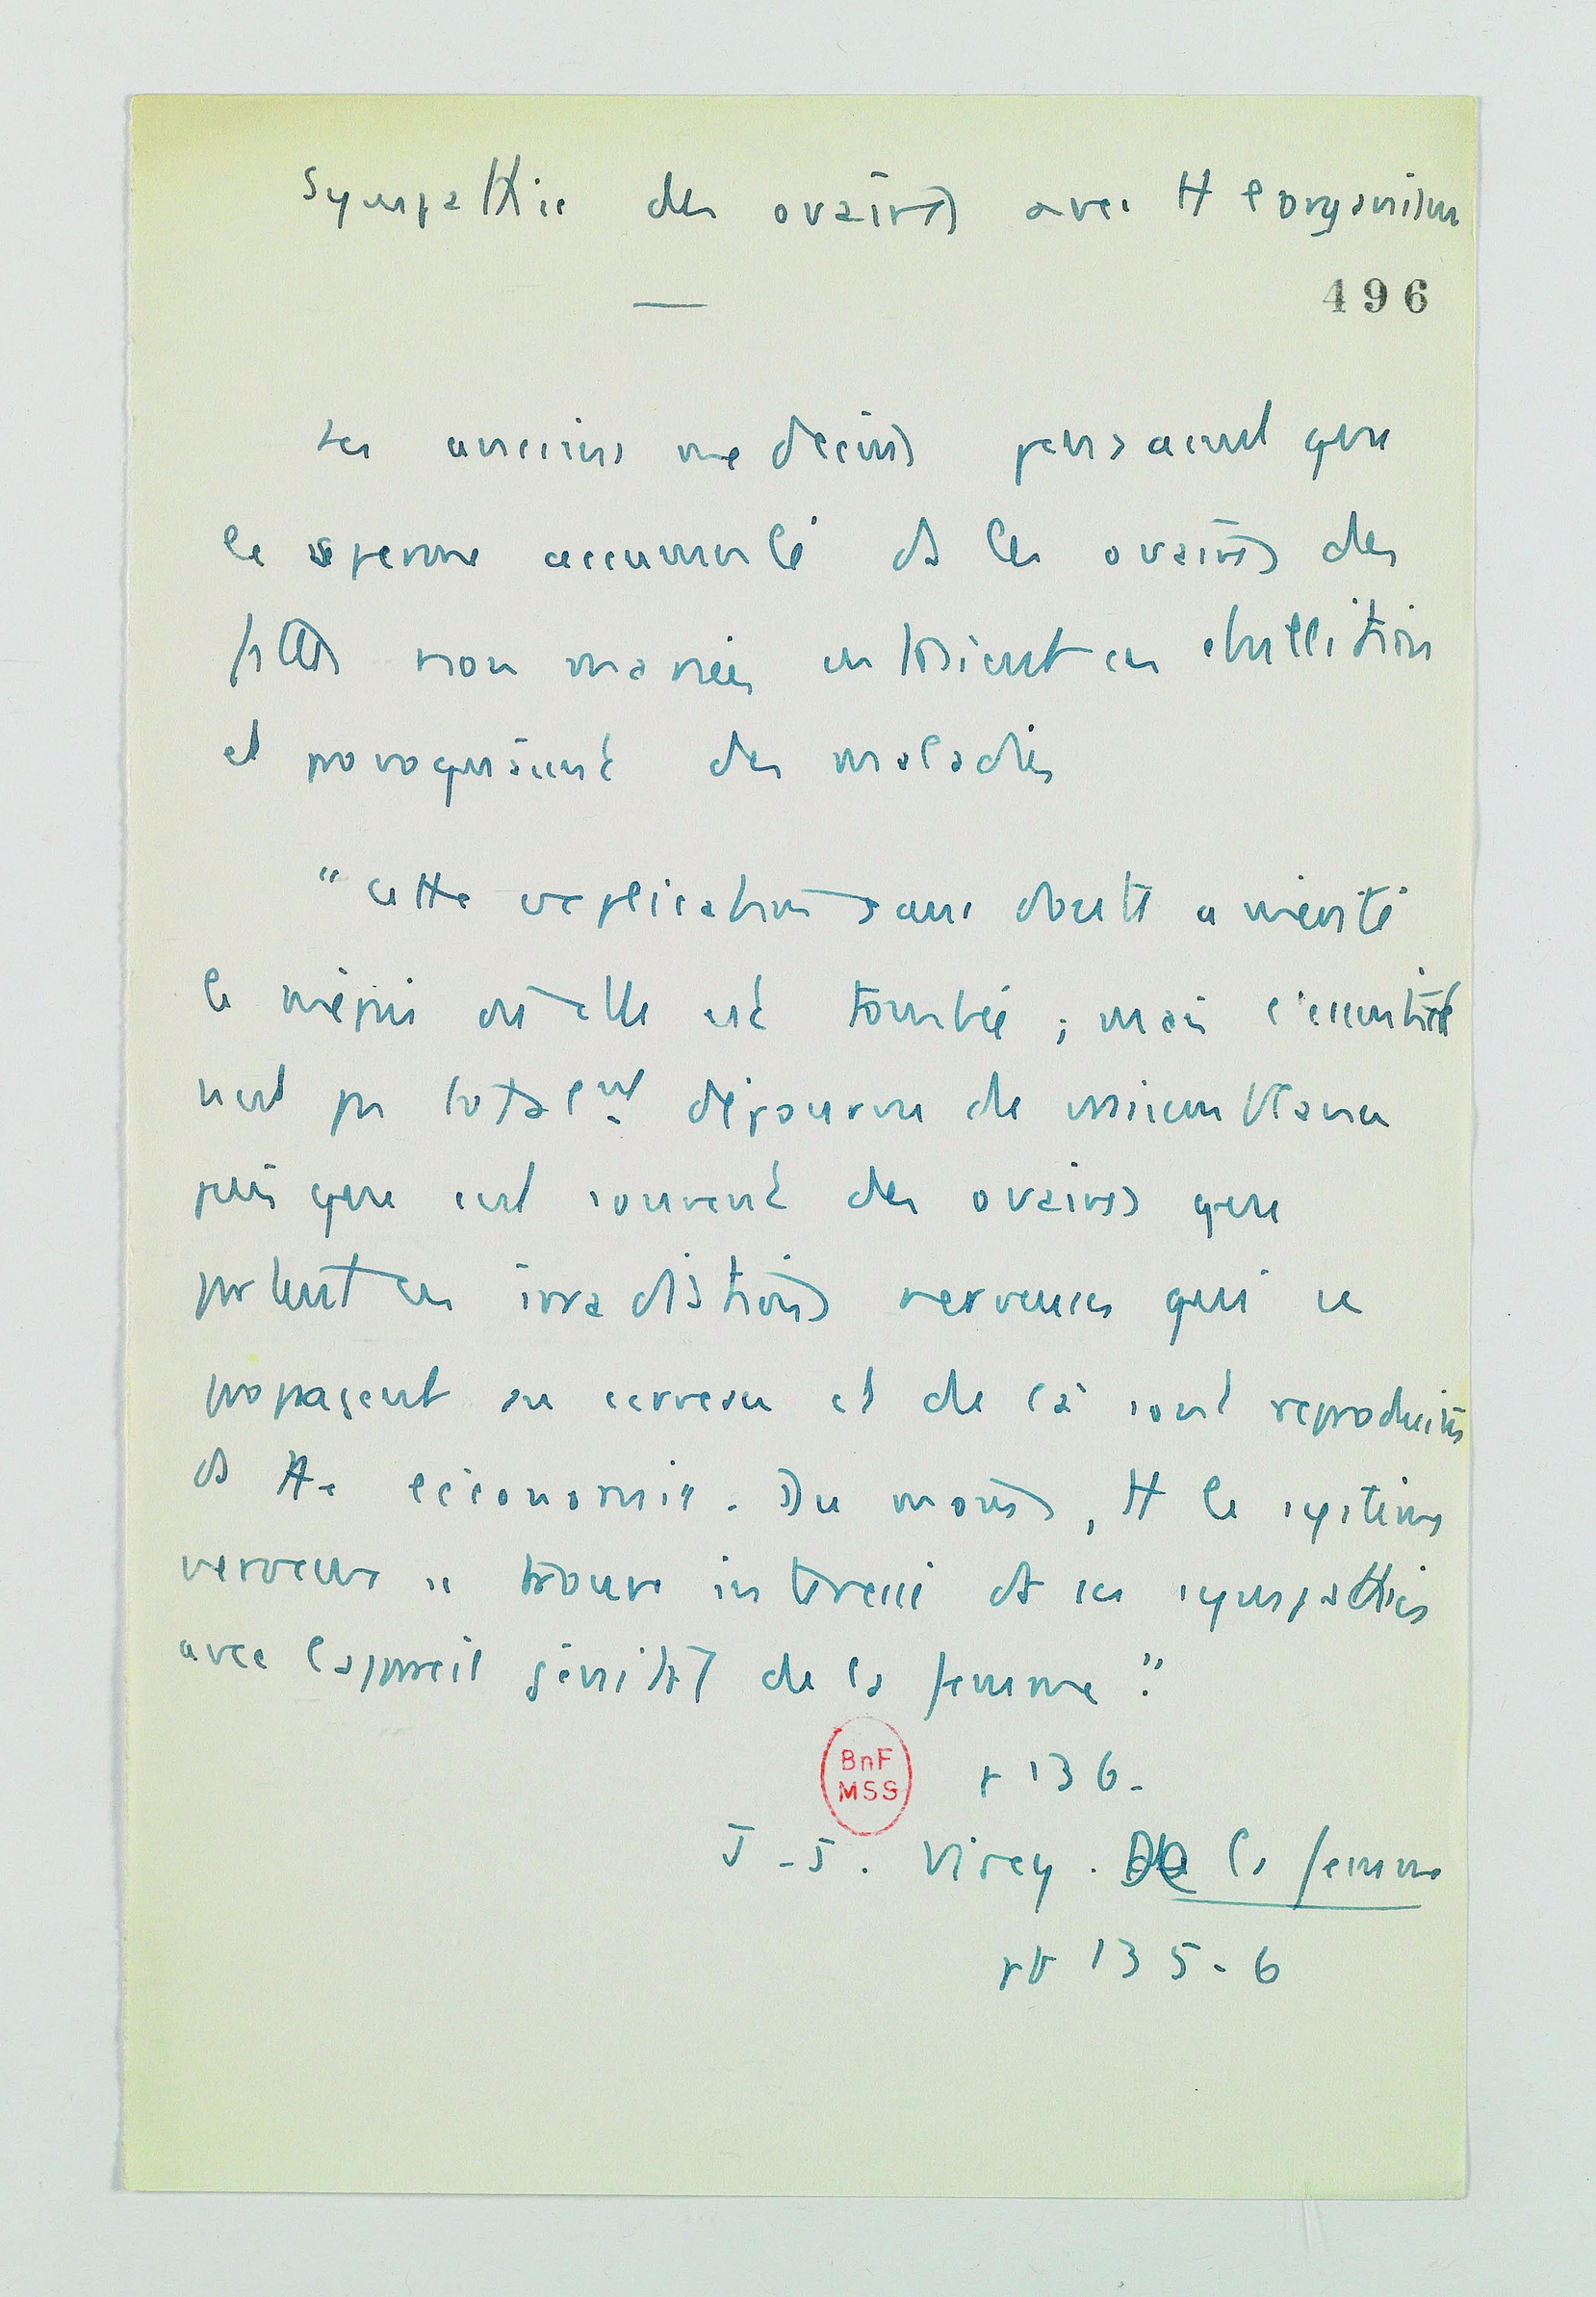 Sympathie des ovaires avec tt l'organisme
496
Les anciens medecins pensaient que
le sperme accumulé ds les ovaires des
filles non mariées entraient en ebullition
et provoquaient des maladies
"cette explication sans doute a mérité
le mépris où elle est tombée ; mais
n'est pas totalmt dépourvue de vraisemblance
puisque c'est souvent des ovaires que
partent ces irradiations nerveuses qui se
propagent au cerveau et de là sont reproduites
ds tte l'économie. Du moins, tt le systeme
nerveux se trouve interessé ds ses sympathies
avec l'appareil génital de la femme".
BnF
MSS
p 136.
J-J. Virey. De la femme
pp 135-6